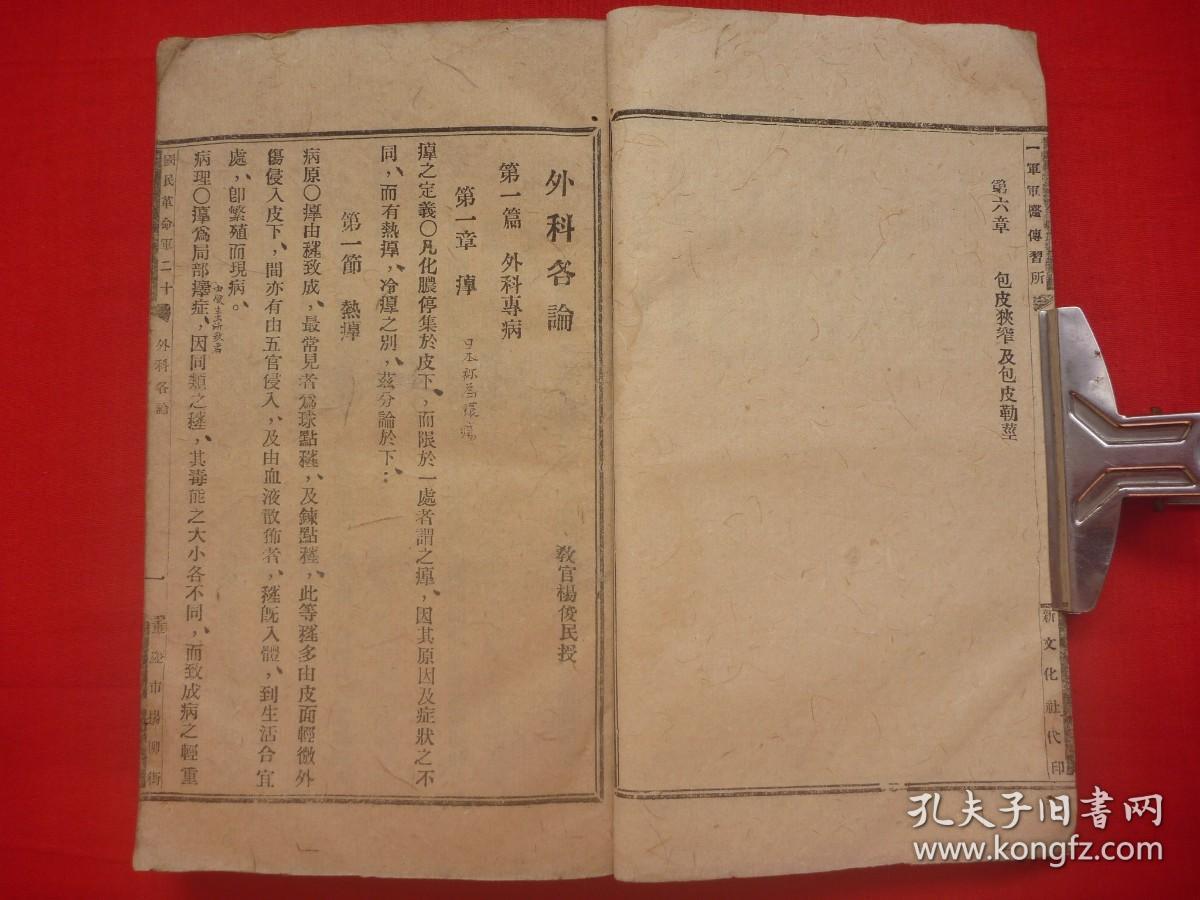 一軍軍醫傳習所
新文化社代印
第六章　包皮狹窄及包皮勒莖
外科各論
教官楊俊民授
第一篇　外科專病
第一章　㾛
日本稱為
㾛之定義〇凡化膿停集於皮下、而限於一處者謂之㾛、因其原因及症狀之不
同、而有熱㾛、冷㾛之別、茲分論於下：
第一節　熱㾛
病原〇㾛由𧏾致成、最常見者爲球點、及鍊點、此等多由皮面輕微外
傷侵入皮下、間亦有由五官侵入、及由血液散佈者、既入體、到生活合宜
處、卽繁殖而現病。
病理〇㾛爲局部症、因同類之、其毒能之大小各不同、而致成病之輕重
國民革命軍二十
外科各論
一
重慶市楊柳街
孔夫子旧书网
www.kongfz.com